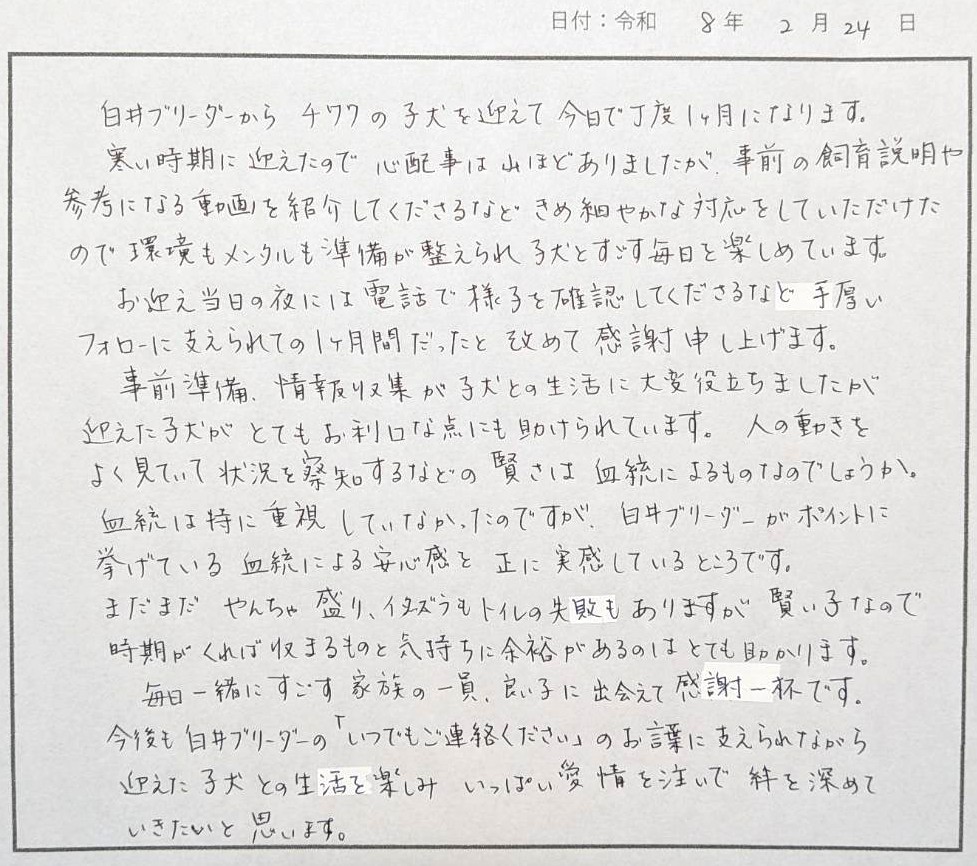 日付：令和 8年 2月24日
白井ブリーダーから チワワの子犬を迎えて今日で丁度1ヶ月になります。
寒い時期に迎えたので 心配事は山ほどありましたが、事前の飼育説明や
参考になる動画を紹介してくださるなど きめ細やかな対応をしていただけた
ので 環境もメンタルも準備が整えられ 子犬とすごす毎日を楽しめています。
お迎え当日の夜には電話で様子を確認してくださるなど 手厚い
フォローに支えられての1ヶ月間だったと 改めて感謝申し上げます。
事前準備、情報収集が子犬との生活に大変役立ちましたが
迎えた子犬が とてもお利口な点にも助けられています。 人の動きを
よく見ていて 状況を察知するなどの 賢さは 血統によるものなのでしょうか。
血統は特に重視していなかったのですが、白井ブリーダーがポイントに
挙げている 血統による安心感を 正に実感しているところです。
まだまだ やんちゃ盛り、イタズラもトイレの失敗もありますが 賢い子なので
時期がくれば収まるものと気持ちに余裕があるのはとても助かります。
毎日一緒にすごす 家族の一員、良い子に出会えて感謝一杯です。
今後も白井ブリーダーの「いつでもご連絡ください」のお言葉に支えられながら
迎えた子犬との生活を楽しみ いっぱい愛情を注いで 絆を深めて
いきたいと思います。